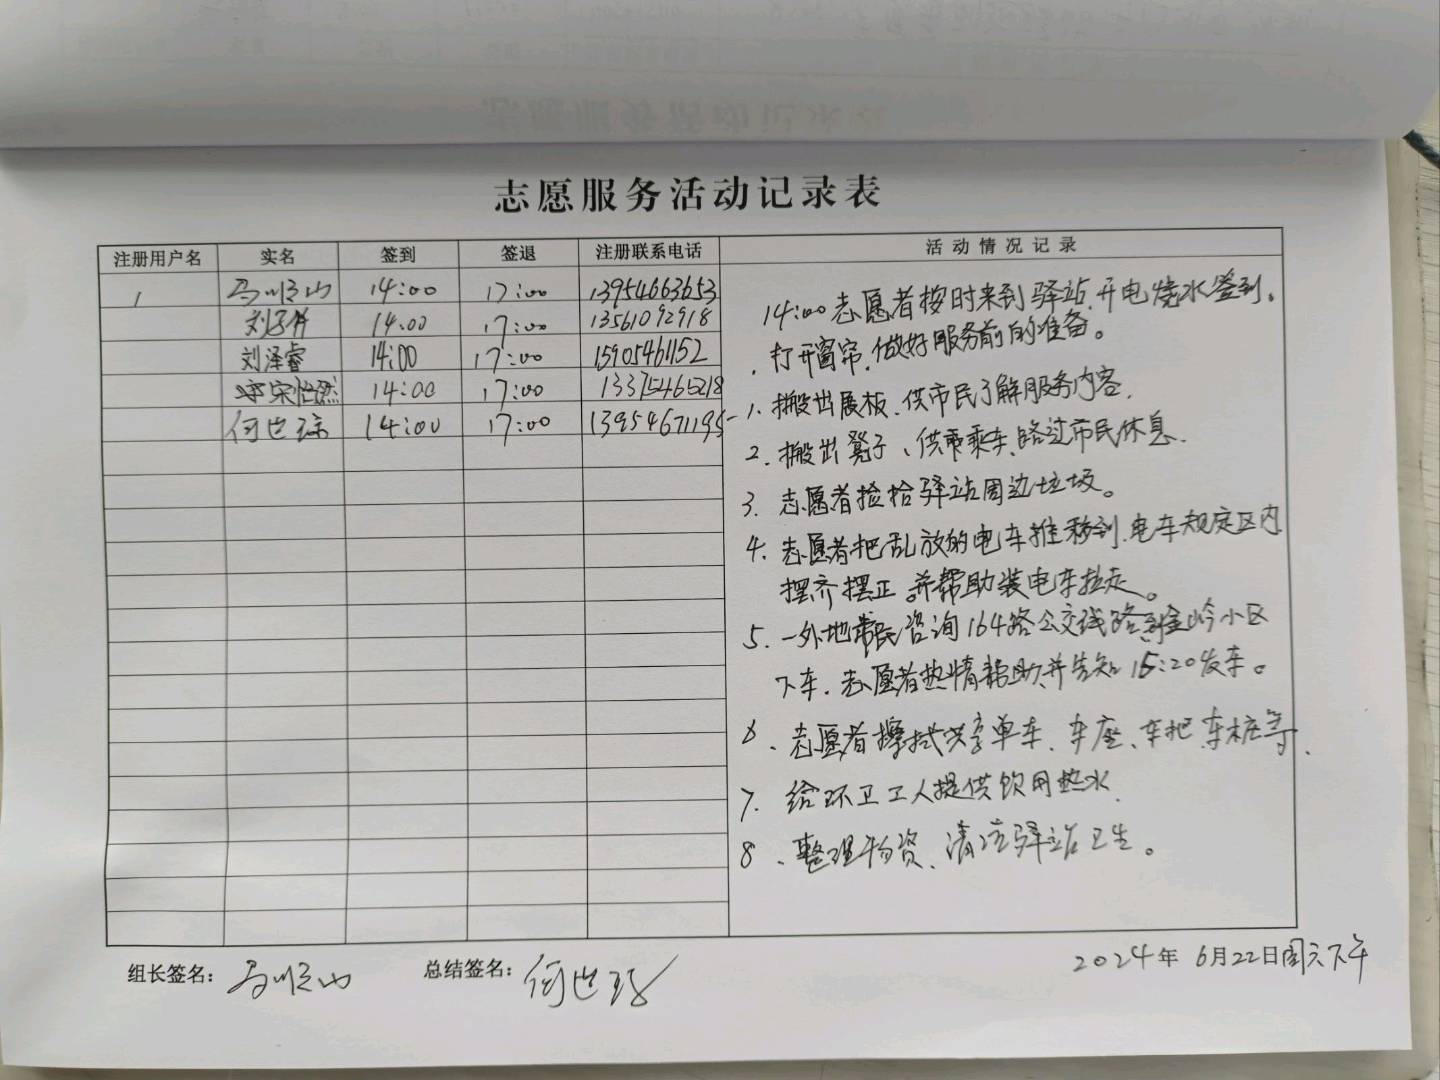 志愿服务活动记录表
注册用户名 实名 签到 签退 注册联系电话 活动情况记录
1 马顺山 14:00 17:00 13954663653
刘子 14:00 17:00 13561092918
刘泽睿 14:00 17:00 15905461152
宋怡然 14:00 17:00 13375465218
何世琼 14:00 17:00 13954671195
14:00志愿者按时来到驿站,开电烧水签到。
打开窗帘,做好服务前的准备。
1、搬出展板、供市民了解服务内容.
2、搬出凳子、供乘车、路过市民休息.
3、志愿者捡拾驿站周边垃圾。
4、志愿者把乱放的电车推移到、电车规定区内
摆齐摆正。并帮助装电车拉走。
5、一外地市民咨询164路公交线路到金岭小区
下车.志愿者热情帮助,并告知15:20发车。
6、志愿者擦拭共享单车、车座、车把、车桩等.
7、给环卫工人提供饮用热水.
8、整理物资、清洁驿站卫生。
组长签名:马顺山 总结签名:何世琼 2024年6月22日周六下午